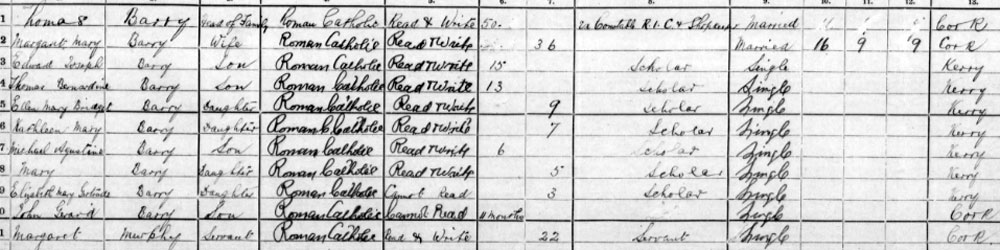 1 Thomas Barry Head of Family Roman Catholic Read & Write 50 Ex Constable R.I.C. & Married " " " Cork
2 Margaret Mary Barry Wife Roman Catholic Read & Write 36 Married 16 9 9 Cork
3 Edward Joseph Barry Son Roman Catholic Read & Write 15 Scholar Single Kerry
4 Thomas Bernardine Barry Son Roman Catholic Read & Write 13 Scholar Single Kerry
5 Ellen Mary Bridget Barry Daughter Roman Catholic Read & Write 9 Scholar Single Kerry
6 Kathleen Mary Barry Daughter Roman Catholic Read & Write 7 Scholar Single Kerry
7 Michael Agustine Barry Son Roman Catholic Read & Write 6 Scholar Single Kerry
8 Mary Barry Daughter Roman Catholic Read & Write 5 Scholar Single Kerry
9 Elizabeth Mary Gertrude Barry Daughter Roman Catholic Cannot Read 3 Scholar Single Kerry
0 John Gerard Barry Son Roman Catholic Cannot Read 11 months Single Cork
1 Margaret Murphy Servant Roman Catholic Read & Write 22 Servant Single Cork